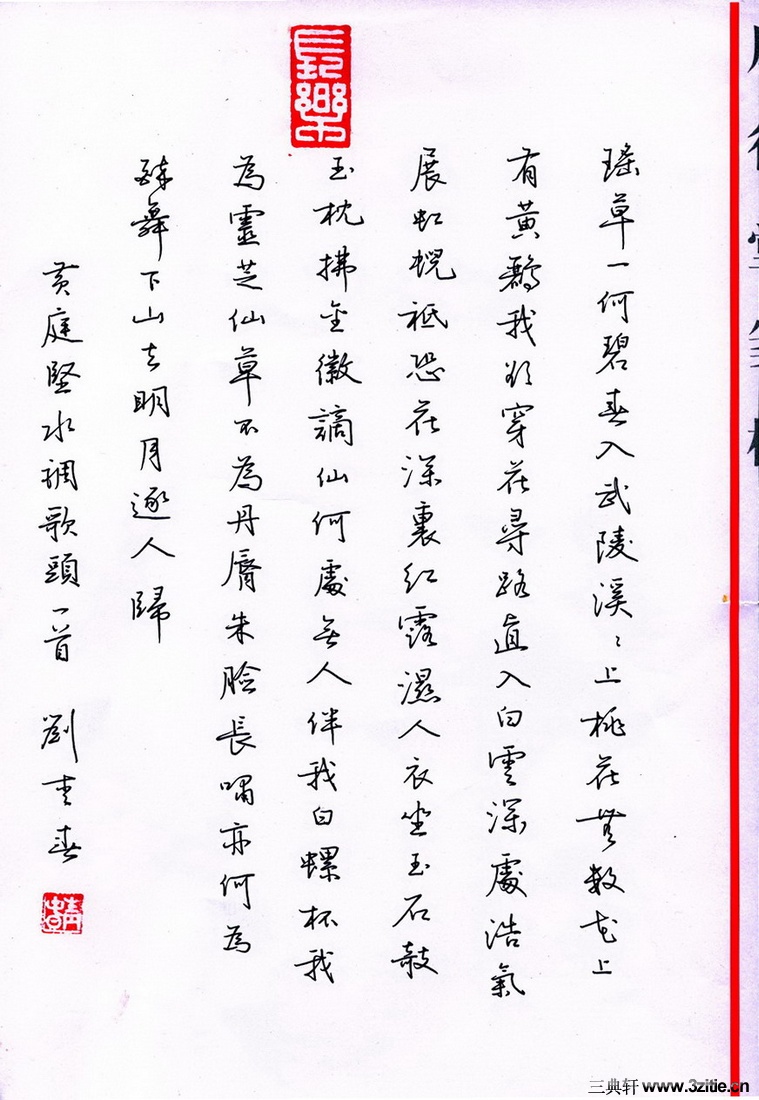 長樂
瑤草一何碧春入武陵溪〻上桃花無數花上
有黃鸝我欲穿花尋路直入白雲深處浩氣
展虹蜺祗恐花深裏紅露濕人衣坐玉石敧
玉枕拂金徽謫仙何處無人伴我白螺杯我
為靈芝仙草不為丹脣朱臉長嘯亦何為
醉舞下山去明月逐人歸
黃庭堅水調歌頭一首 劉青春
三典轩 www.3zitie.cn